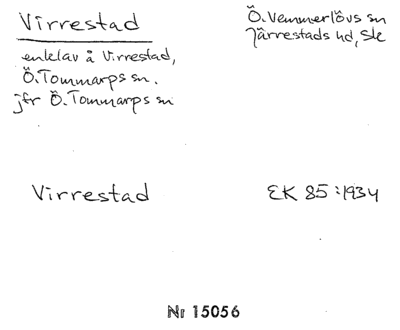 Virrestad
enklav å Virrestad,
Ö. Tommarps sn.
jfr Ö. Tommarps sn
Ö. Vemmerlövs sn
Järrestads hd, Ske
Virrestad
EK 85:1934
Nr 15056